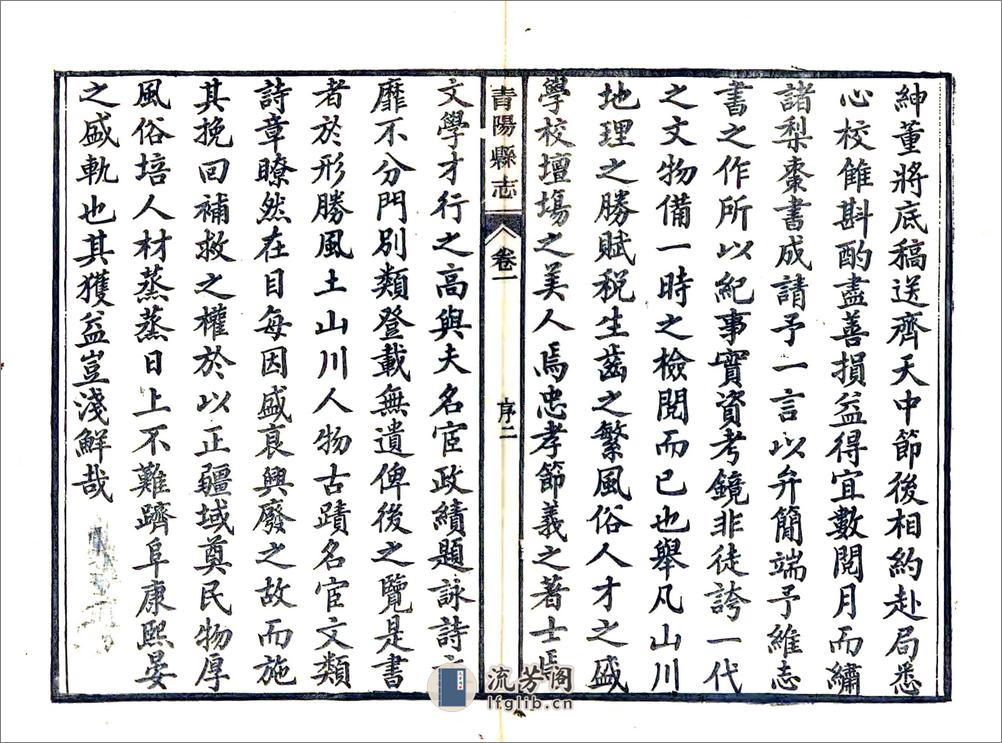 紳董將底稿送齊天中節後相約赴局悉
心校讎斟酌盡善損益得宜數閱月而繡
諸梨棗書成請予一言以弁簡端予維志
書之作所以紀事實資考鏡非徒誇一代
之文物備一時之檢閱而已也舉凡山川
地理之勝賦稅生齒之繁風俗人才之盛
學校壇場之美人焉忠孝節義之著士焉
青陽縣志
卷一
序二
文學才行之高與夫名宦政績題詠詩
靡不分門別類登載無遺俾後之覽是書
者於形勝風土山川人物古蹟名宦文類
詩章瞭然在目每因盛衰興廢之故而施
其挽回補救之權於以正疆域奠民物厚
風俗培人材蒸蒸日上不難躋阜康熙晏
之盛軌也其獲益豈淺鮮哉
流芳閣
lfglib.cn